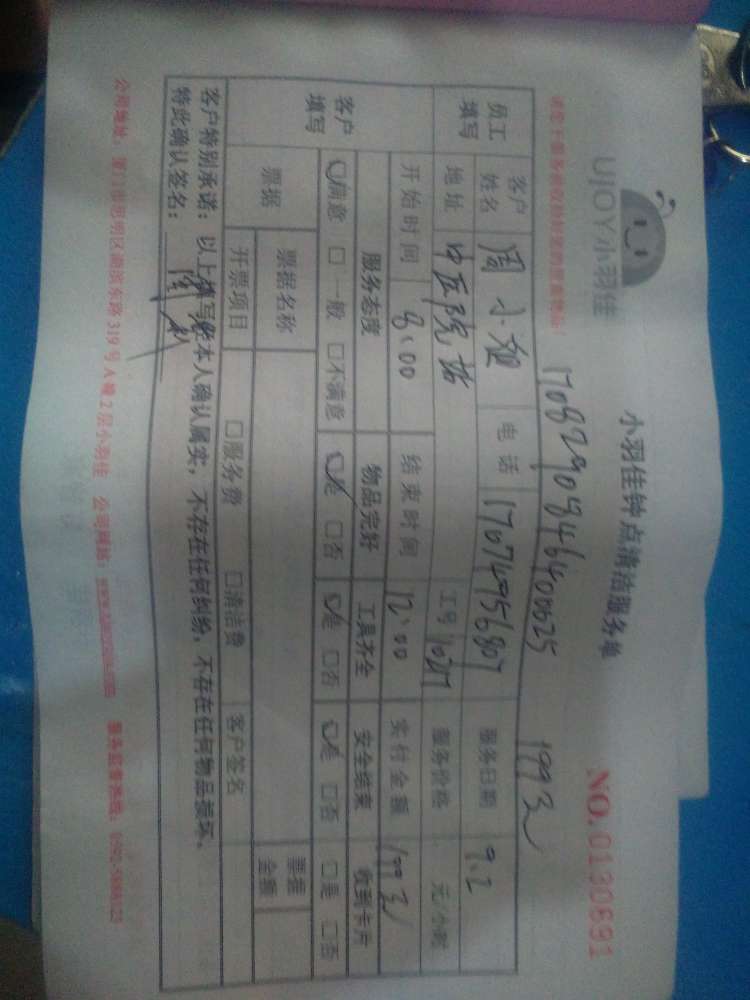 UJOY小羽佳
小羽佳钟点清洁服务单
NO.0130691
17082909846400625
199元
员工填写 客户姓名 周小姐 电话 17074956807 服务日期 9.2
地址 中医院站 工号 服务价格 元/小时
开始时间 8:00 结束时间 12:00 实付金额 199元
客户填写 服务态度 物品完好 工具齐全 安全结束 收到卡片
□满意 □一般 □不满意 □是 □否 □是 □否 □是 □否 □是 □否
票据 票据名称 票据金额
开票项目 □服务费 □清洁费 客户签名
客户特别承诺：以上填写经本人确认属实，不存在任何纠纷，不存在任何物品损坏、
特此确认签名：
公司地址：厦门市思明区湖滨东路319号A幢2层小羽佳 公司网站： 服务监督热线：